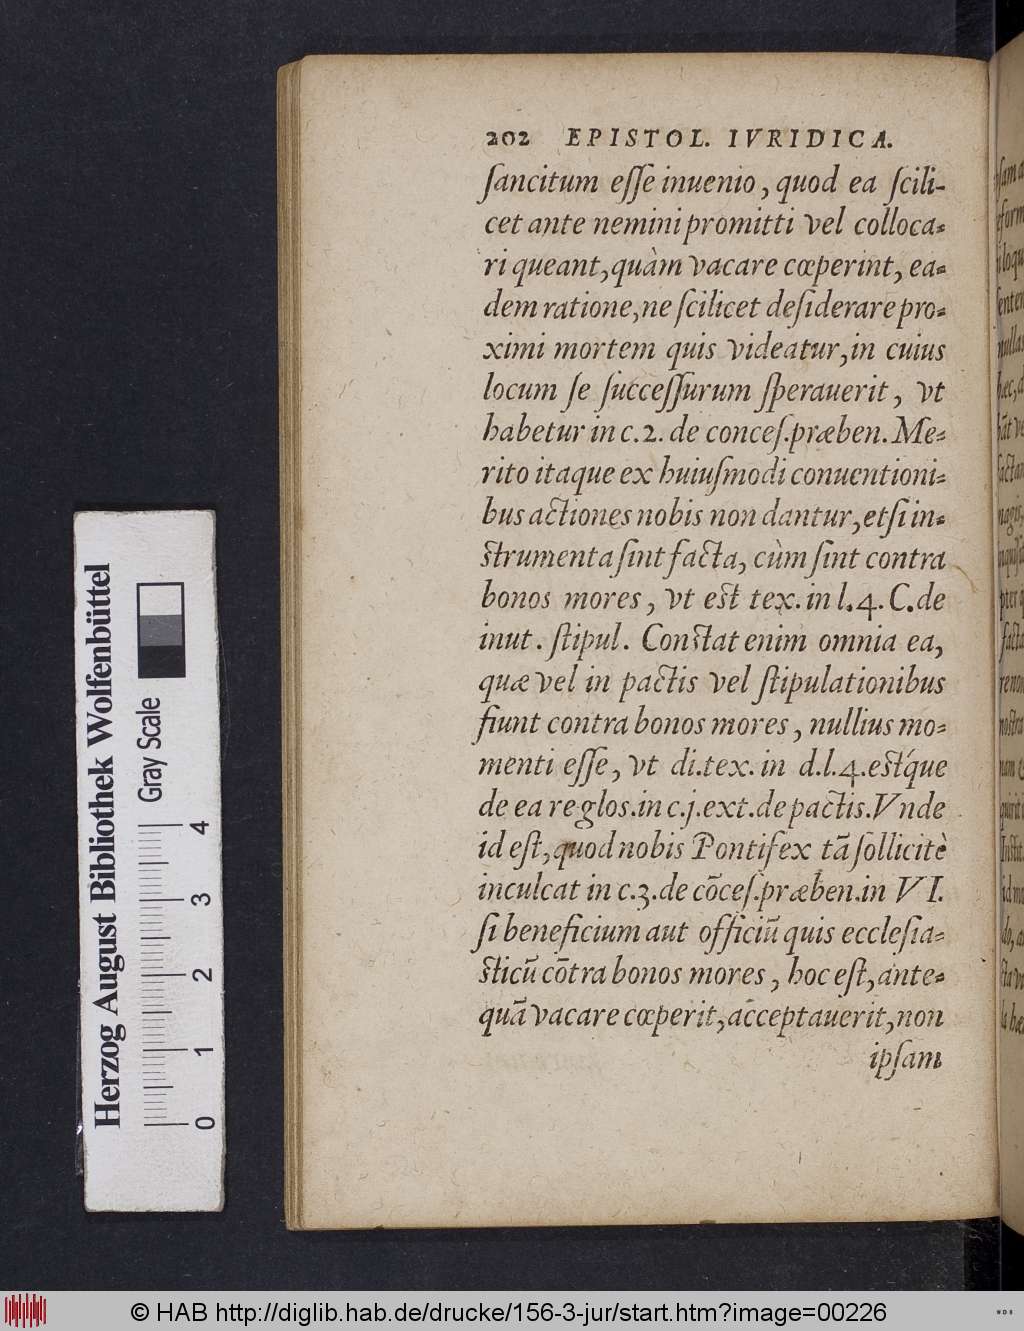 202 EPISTOL. IVRIDICA.
sancitum esse inuenio, quod ea scili-
cet ante nemini promitti vel colloca-
ri queant, quàm vacare cœperint, ea-
dem ratione, ne scilicet desiderare pro-
ximi mortem quis videatur, in cuius
locum se successurum sperauerit, vt
habetur in c.2. de conces.præben. Me-
rito itaque ex huiusmodi conuentioni-
bus actiones nobis non dantur, etsi in-
strumenta sint facta, cùm sint contra
bonos mores, vt est tex. in l.4. C. de
inut. stipul. Constat enim omnia ea,
quæ vel in pactis vel stipulationibus
fiunt contra bonos mores, nullius mo-
menti esse, vt di.tex. in d.l.4. estq́ue
de ea re glos.in c.j.ext.de pactis. Vnde
id est, quod nobis Pontifex tā sollicitè
inculcat in c.3.de cōces.præben.in VI.
si beneficium aut officiū quis ecclesia-
sticū cōtra bonos mores, hoc est, ante-
quā vacare cœperit, acceptauerit, non
ipsam
Herzog August Bibliothek Wolfenbüttel
Gray Scale
0 1 2 3 4
© HAB http://diglib.hab.de/drucke/156-3-jur/start.htm?image=00226